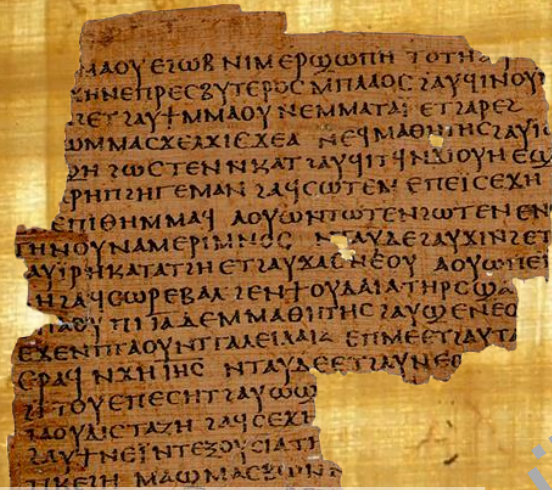 ⲙⲁⲟⲩ ⲉϩⲱⲃ ⲛⲓⲙ ⲉⲣϣⲱⲡⲏ ⲧⲟⲧⲏ
ϫⲏⲛⲉⲡⲣⲉⲥⲃⲩⲧⲉⲣⲟⲥ ⲙⲡⲗⲁⲟⲥ ϩⲁⲩϭⲓⲛⲟⲩ
ⲉⲧϩⲁⲩϯⲙⲙⲁⲟⲩ ⲛⲉⲙⲙⲁⲧⲁⲓ ⲉⲧϩⲁⲣⲉϩ
ⲱⲙⲙⲁⲥϫⲉⲁϫⲓⲉϫⲉⲁ ⲛⲉϥⲙⲁⲑⲏⲧⲏⲥ ϩⲁⲩⲓ
ϩⲱⲥⲧⲉⲛ ⲛⲕⲁⲧ ϩⲁⲩϥⲓⲧϥ ⲛϫⲓⲟⲩⲏ ⲉϣ
ⲣⲏⲡϩⲏⲅⲉⲙⲁⲛ ϩⲁϥⲥⲱⲧⲉⲙ ⲉⲡⲉⲓⲥⲉϫⲏ
ⲉⲡⲓⲑⲏⲙⲙⲁϥ ⲁⲟⲩⲱ ⲛⲧⲱⲧⲉⲛ ϩⲱⲧⲉⲛ ⲉⲛ
ⲧⲏⲛⲟⲩ ⲛⲁⲙⲉⲣⲓⲙⲛⲟⲥ ⲛⲧⲁⲩⲇⲉ ϩⲁⲩϫⲓ ⲛϩⲉⲧ
ⲁⲩⲓⲣⲏ ⲕⲁⲧⲁⲧϩⲏ ⲉⲧϩⲁⲩϫⲁⲥ ⲛⲉⲟⲩ ⲁⲟⲩⲱ ⲡⲉⲓ
ⲏ ϩⲁϥⲥⲱⲣ ⲉⲃⲁⲗ ϩⲉⲛ ϯⲟⲩⲇⲁⲓⲁ ⲧⲏⲣⲥ ϣⲁ
ⲁⲟⲩ ⲡⲓ ⲓⲁ ⲇⲉ ⲙⲙⲁⲑⲏⲧⲏⲥ ϩⲁⲩϣⲉⲛⲉⲟ
ⲉϫⲉⲛ ⲡⲧⲁⲟⲩ ⲛⲧⲅⲁⲗⲉⲓⲗⲁⲓⲁ ⲉⲡⲙⲉ ⲉⲧϩⲁⲩⲧⲁ
ⲉⲣⲁϥ ⲛϫⲏ ⲓⲏⲥ ⲛⲧⲁⲩⲇⲉ ⲉⲧϩⲁⲩⲛⲉⲟ
ϩⲓ ⲧⲟⲩ ⲉⲡⲉⲥⲏⲧ ϩⲁⲩⲟⲩⲱ
ϩⲁⲟⲩⲇⲓⲥⲧⲁⲍⲏ ϩⲁϥⲥⲉϫⲓ
ϩⲁⲩϯ ⲛⲉⲓ ⲛⲧⲉⲝⲟⲩⲥⲓⲁ ⲧⲏ
ϩⲓⲡⲕⲉϩⲏ ⲙⲁϣⲙⲁⲥⲃⲱ ⲛⲛ